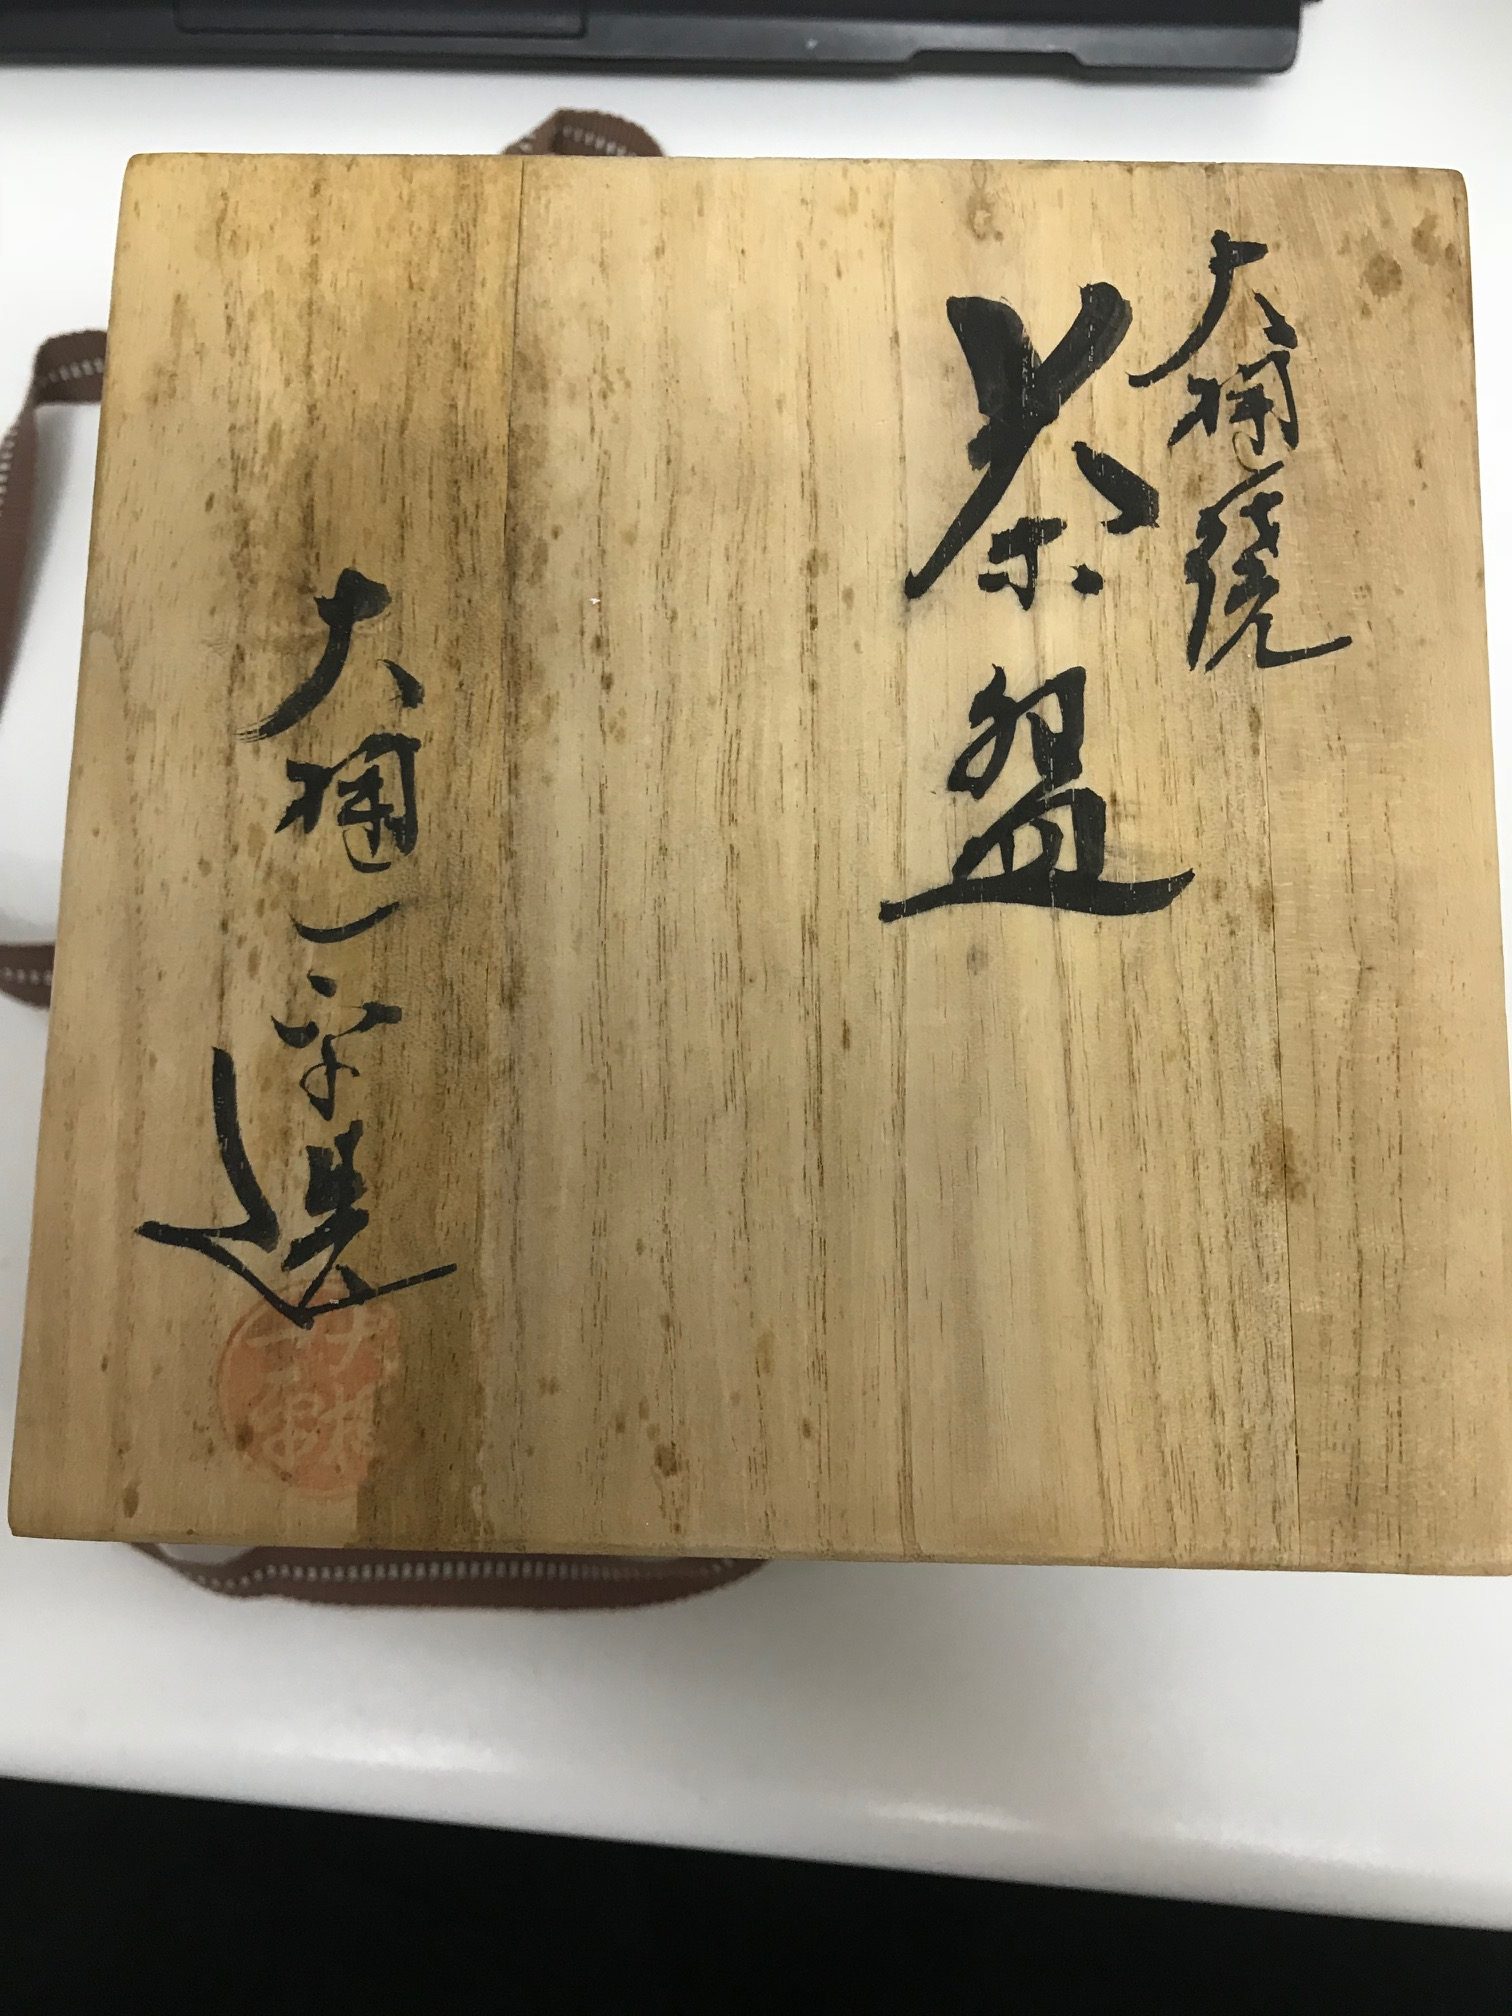 大樋焼
茶盌
大樋一字造